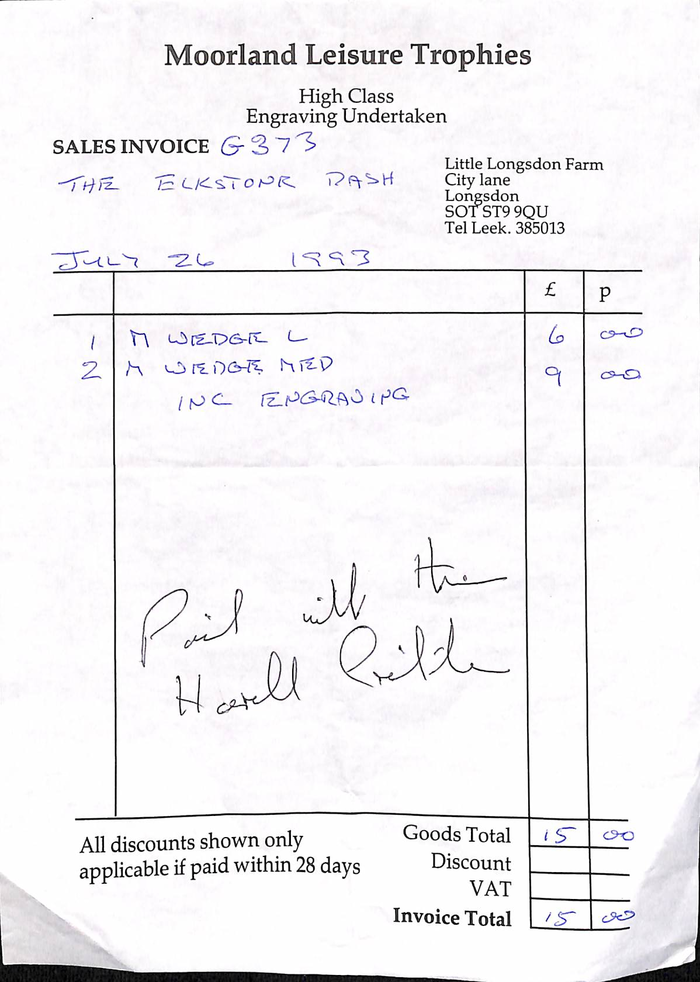 Moorland Leisure Trophies
High Class
Engraving Undertaken
SALES INVOICE G373
THE ELKSTONR DASH
Little Longsdon Farm
City lane
Longsdon
SOT ST9 9QU
Tel Leek. 385013
JULY 26 1993
£ p
1 M WEDGE L 6 00
2 M WEDGE MED 9 00
INC ENGRAVING
Paid with the
All discounts shown only
applicable if paid within 28 days
Goods Total 15 00
Discount
VAT
Invoice Total 15 00